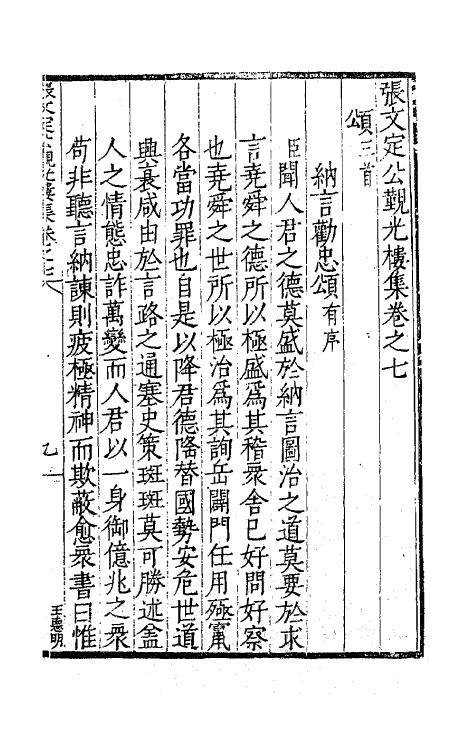 張文定公覲光樓集卷之七
頌三首
納言勸忠頌有序
臣聞人君之德莫盛於納言圖治之道莫要於求
言堯舜之德所以極盛爲其稽衆舍已好問好察
也堯舜之世所以極治爲其詢岳闢門任用殛竄
各當功罪也自是以降君德隆替國勢安危世道
興衰咸由於言路之通塞史策斑斑莫可勝述盖
人之情態忠詐萬變而人君以一身御億兆之衆
苟非聽言納諫則疲極精神而欺蔽愈衆書曰惟
張文定公覲光樓集卷之七
一
王惠明